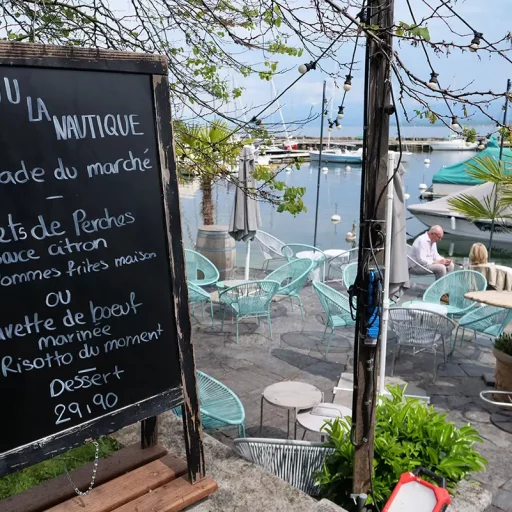 OU LA NAUTIQUE
ade du marché
ets de Perches
auce citron
ommes frites maison
OU
avette de boeuf
marinée
Risotto du moment
Dessert
29,90